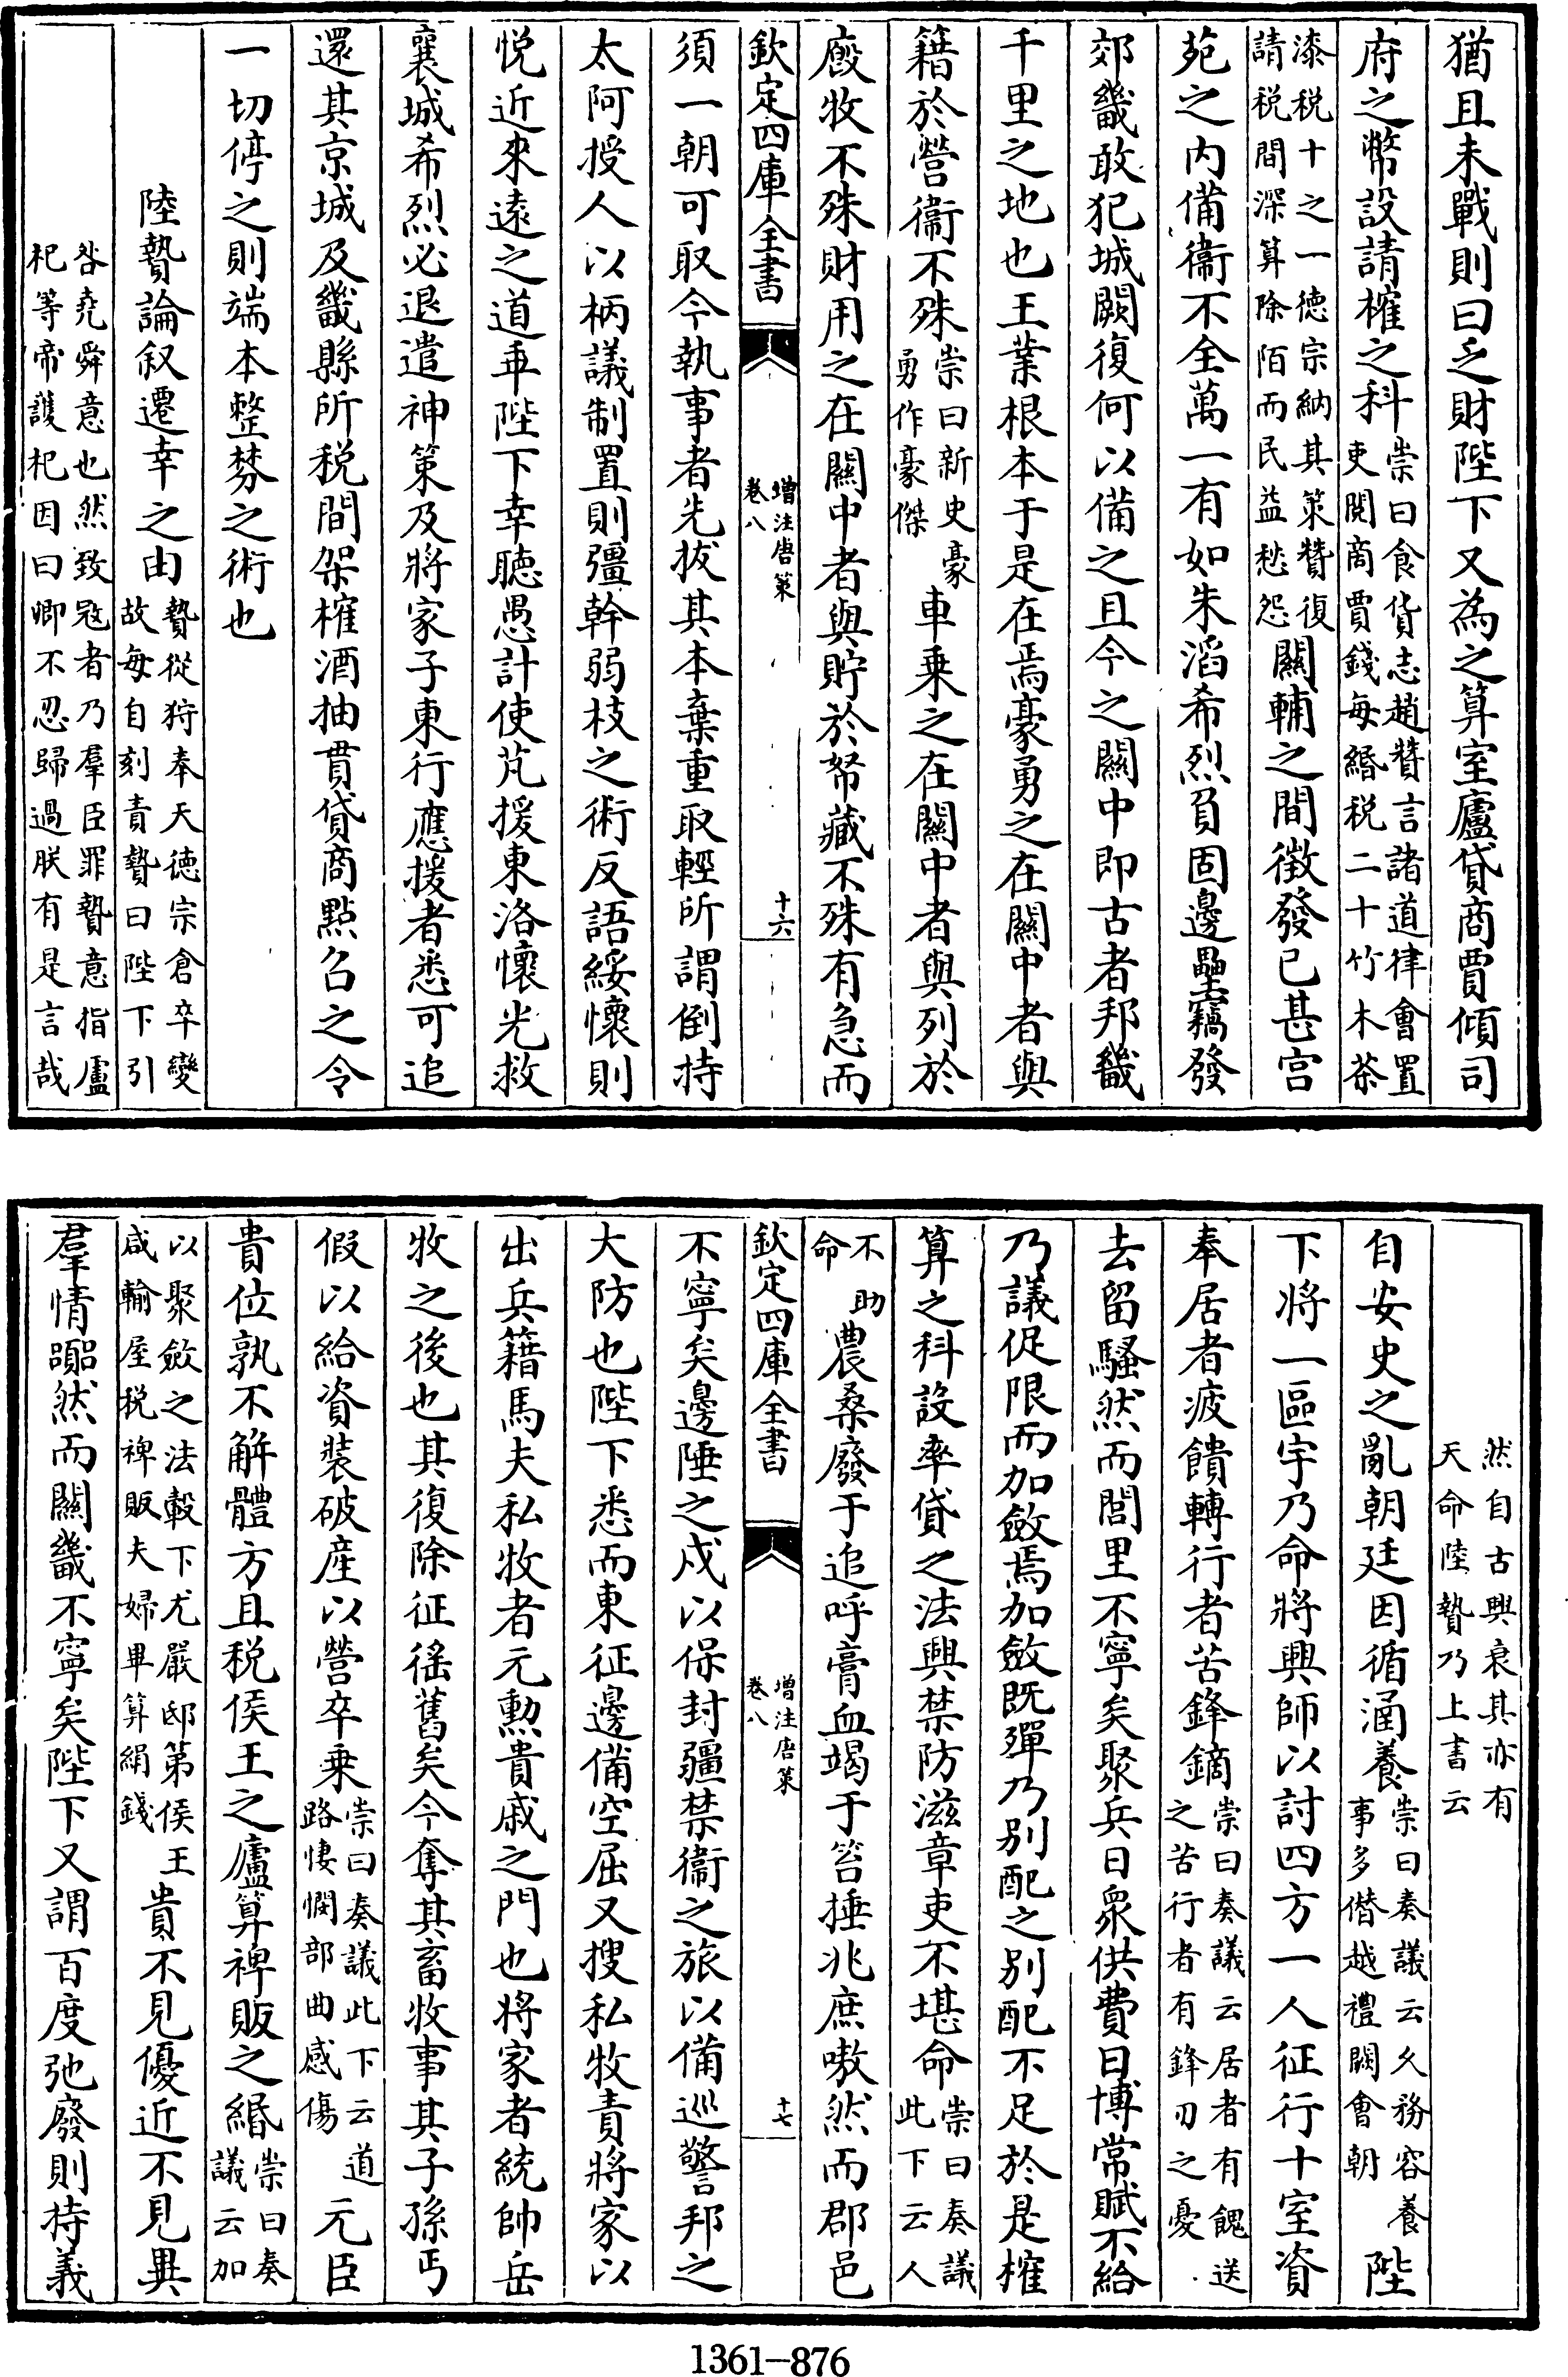 猶且未戰則曰乏財陛下又為之算室廬貸商賈傾司
府之幣設請榷之科崇曰食貨志趙贊言諸道律會置吏閱商賈錢每緡稅二十竹木茶
漆税十之一德宗納其策贊復請税間深算除陌而民益愁怨關輔之間徵發已甚宫
苑之内備衞不全萬一有如朱滔希烈負固邊壘竊發
郊畿敢犯城闕復何以備之且今之關中即古者邦畿
千里之地也王業根本于是在焉豪勇之在關中者與
籍於營衞不殊崇曰新史豪勇作豪傑車乘之在關中者與列於
廐牧不殊財用之在關中者與貯於帑藏不殊有急而
欽定四庫全書
增注唐策
卷八
十六
須一朝可取今執事者先拔其本棄重取輕所謂倒持
太阿授人以柄議制置則彊幹弱枝之術反語綏懷則
悦近來遠之道乖陛下幸聽愚計使芃援東洛懷光救
襄城希烈必退遣神策及將家子東行應援者悉可追
還其京城及畿縣所税間架榷酒抽貫貸商點召之令
一切停之則端本整棼之術也
陸贄論叙遷幸之由贄從狩奉天德宗倉卒變故每自刻責贄曰陛下引
咎堯舜意也然致冦者乃羣臣罪贄意指盧杞等帝護杞因曰卿不忍歸過朕有是言哉
然自古興衰其亦有天命陸贄乃上書云
自安史之亂朝廷因循涵養崇曰奏議云久務容養事多僭越禮闕會朝陛
下將一區宇乃命將興師以討四方一人征行十室資
奉居者疲饋轉行者苦鋒鏑崇曰奏議云居者有餽送之苦行者有鋒刃之憂
去留騷然而閭里不寧矣聚兵日衆供費日博常賦不給
乃議促限而加斂焉加斂既殫乃别配之别配不足於是榷
算之科設率貸之法興禁防滋章吏不堪命崇曰奏議此下云人
不助命農桑廢于追呼膏血竭于笞捶兆庶嗷然而郡邑
欽定四庫全書
增注唐策
卷八
十七
不寧矣邊陲之戍以保封疆禁衞之旅以備巡警邦之
大防也陛下悉而東征邊備空屈又搜私牧責將家以
出兵籍馬夫私牧者元勲貴戚之門也將家者統帥岳
牧之後也其復除征徭舊矣今奪其畜牧事其子孫丐
假以給資裝破産以營卒乘崇曰奏議此下云道路悽憫部曲感傷元臣
貴位孰不解體方且税侯王之廬算裨販之緡崇曰奏議云加
以聚斂之法轂下尤嚴邸第侯王咸輸屋税裨販夫婦畢算緡錢貴不見優近不見異
羣情嚻然而關畿不寧矣陛下又謂百度弛廢則持義
1361—876